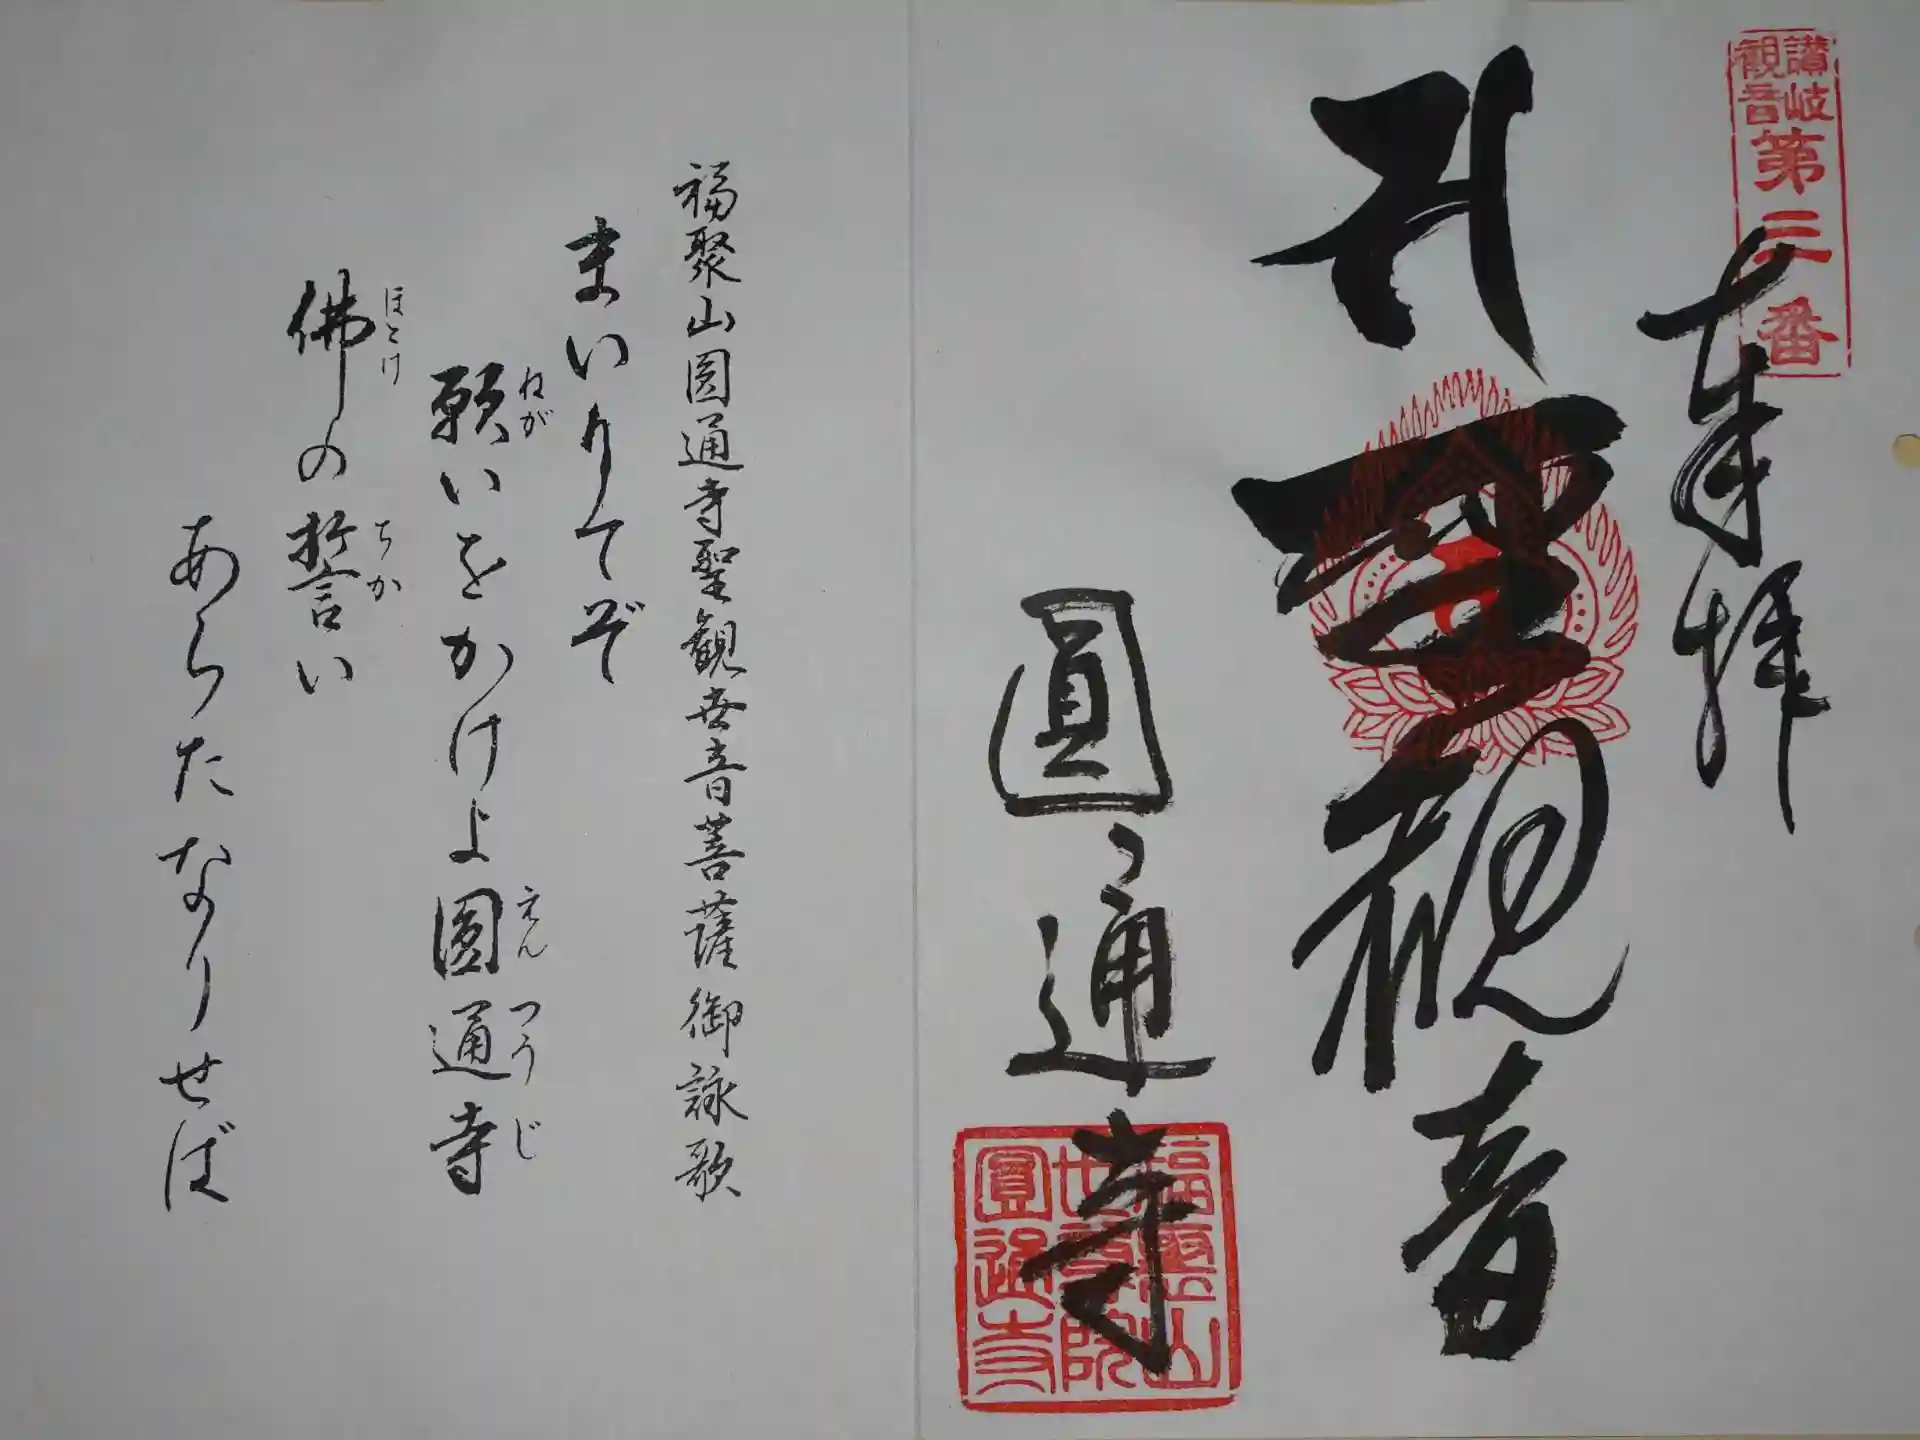 讃岐
観音
第三番
奉拝
聖観音
圓通寺
福聚山
圓通寺
福聚山圓通寺聖観世音菩薩御詠歌
まいりてぞ
願いをかけよ圓通寺
ねが
えんつうじ
佛の誓い
ほとけ
ちか
あらたなりせば